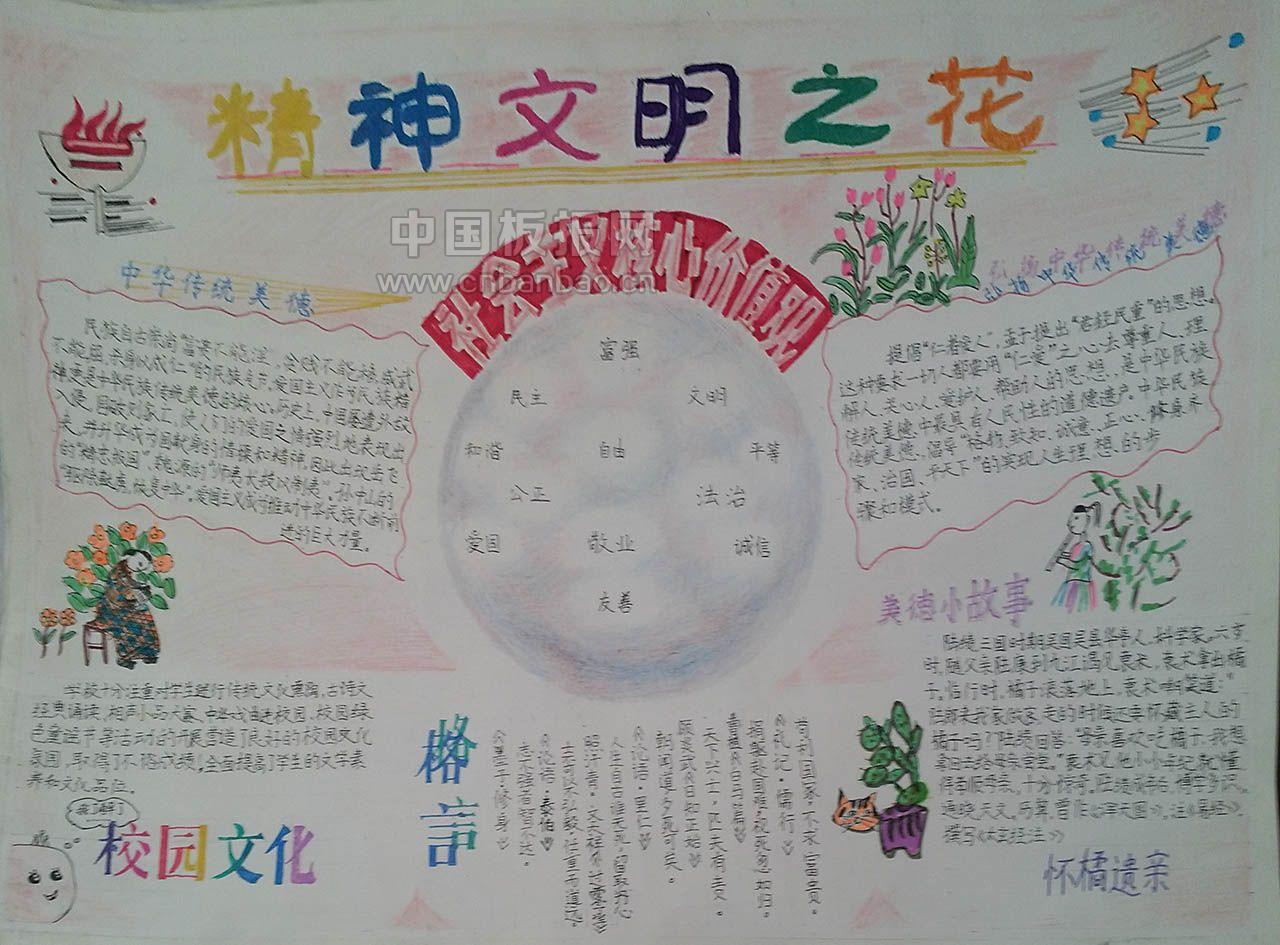 精神文明之花
中国板报网
www.cnbanbao.cn
社会主义核心价值观
富强
民主
文明
和谐
自由
平等
公正
法治
爱国
敬业
诚信
友善
中华传统美德
民族自古崇尚"富贵不能淫，贫贱不能移，威武
不能屈，杀身以成仁"的民族气节，爱国主义作为民族精
神更是中华民族传统美德的核心。历史上，中国屡遭外敌
入侵，国破列家亡，使人们的爱国之情强烈地表现出
来，并升华成为国献身的情操和精神，因此出现岳飞
的"精忠报国"、魏源的"师夷长技以制夷"、孙中山的
"驱除鞑虏，恢复中华"，爱国主义成为推动中华民族不断前
进的巨大力量。
弘扬中华传统美德
弘扬中华传统美德
提倡"仁者爱人"，孟子提出"君轻民重"的思想。
这种要求一切人都要用"仁爱"之心去尊重人、理
解人、关心人、爱护人、帮助人的思想，是中华民族
传统美德中最具有人民性的道德遗产。中华民族
传统美德，倡导"格物、致知、诚意、正心、修身、齐
家、治国、平天下"的实现人生理想的步
骤和模式。
学校十分注重对学生进行传统文化熏陶，古诗文
经典诵读，相声小品大家，中华戏曲进校园，校园绿
色童谣节等活动的开展营造了良好的校园文化
氛围，取得了不俗成绩！全面提高了学生的文学素
养和文化品位。
校园文化
格言
苟利国家，不求富贵。
《礼记·儒行》
捐躯赴国难，视死忽如归。
曹植《白马篇》
天下兴亡，匹夫有责。
顾炎武《日知录》
朝闻道，夕死可矣。
《论语·里仁》
人生自古谁无死，留取丹心
照汗青。文天祥《过零丁洋》
士不可以不弘毅，任重而道远。
《论语·泰伯》
志不强者智不达。
《墨子·修身》
美德小故事
陆绩，三国时期吴国吴县华亭人，科学家。六岁
时，随父亲陆康到九江谒见袁术，袁术拿出橘
子，临行时，橘子滚落地上，袁术嘲笑道："
陆郎来我家做客，走的时候还要怀藏主人的
橘子吗？"陆绩回答："母亲喜欢吃橘子，我想
拿回去给母亲尝尝。"袁术见他小小年纪就懂
得孝顺母亲，十分惊奇。陆绩成年后，博学多识，
通晓天文、历算，曾作《浑天图》，注《易经》，
撰写《太玄经注》
怀橘遗亲